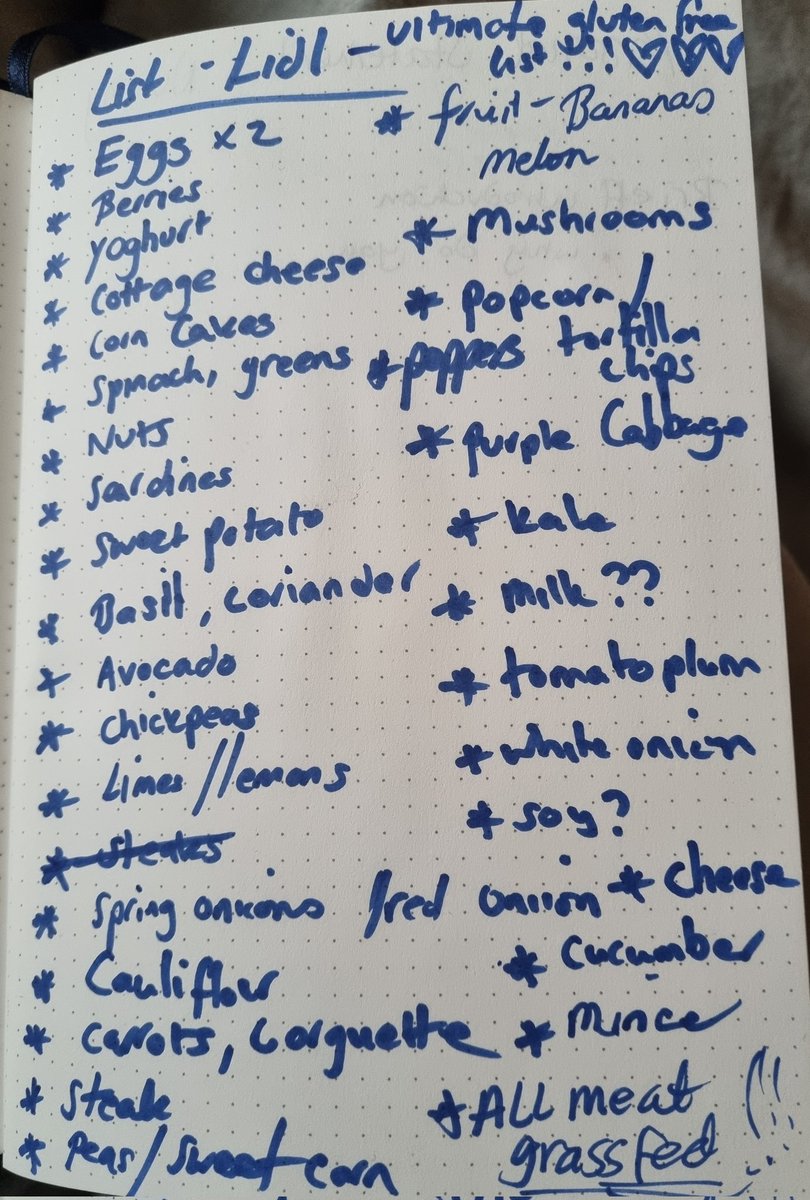 List - Lidl - ultimate gluten free
list !!! ♡♡♡
* Eggs x 2
* Berries
* Yoghurt
* Cottage cheese
* Corn Cakes
* Spinach, greens
* Nuts
* Sardines
* Sweet potato
* Basil, coriander
* Avocado
* Chickpeas
* Limes // lemons
* Steaks
* Spring onions /red onion
* Cauliflour
* Carrots, Corguette
* Steak
* Peas / sweet corn
* fruit - Bananas
melon
* Mushrooms
* popcorn /
tortilla
chips
* peppers
* purple Cabbage
* kale
* milk ??
* tomato plum
* white onion
* soy ?
* cheese
* cucumber
* Mince
* ALL meat
grass fed !!